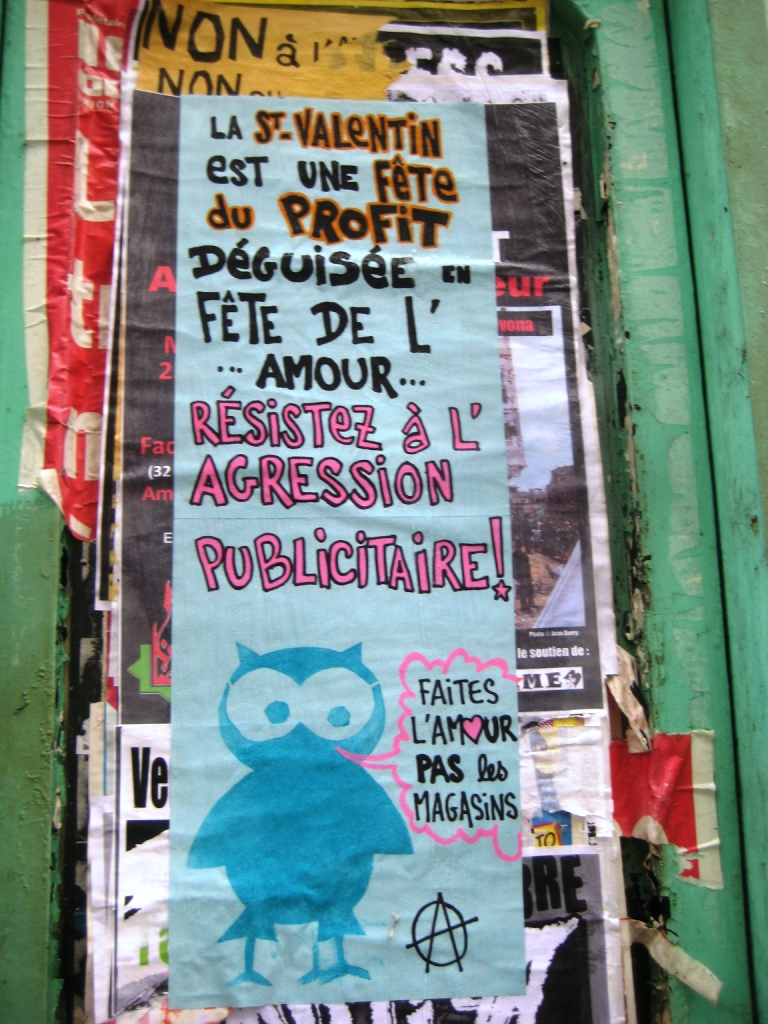 NON à l'
NON
LA ST-VALENTIN
EST UNE FÊTE
du PROFIT
DÉGUISÉE EN
FÊTE DE L'
... AMOUR...
RÉSISTEZ À L'
AGRESSION
PUBLICITAIRE!
eur
vona
Fac
(32
Am
Photo © Jean Berry
le soutien de :
ME
FAITES
L'AMOUR
PAS les
MAGASINS
Ve
TO
BRE